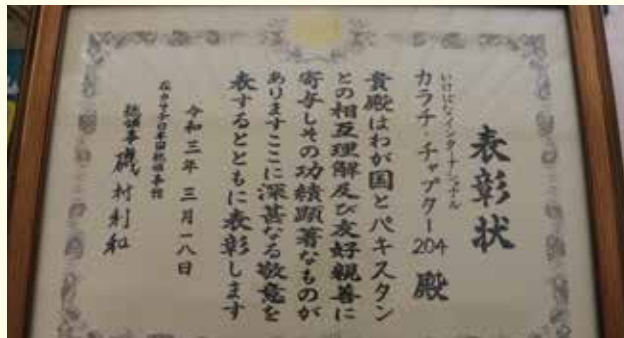 表彰状
いけばなインターナショナル
カラチ・チャプター204 殿
貴殿はわが国とパキスタン
との相互理解及び友好親善に
寄与しその功績顕著なものが
ありますここに深甚なる敬意を
表するとともに表彰します
令和三年 三月一八日
在カラチ日本国総領事館
総領事 磯村利和